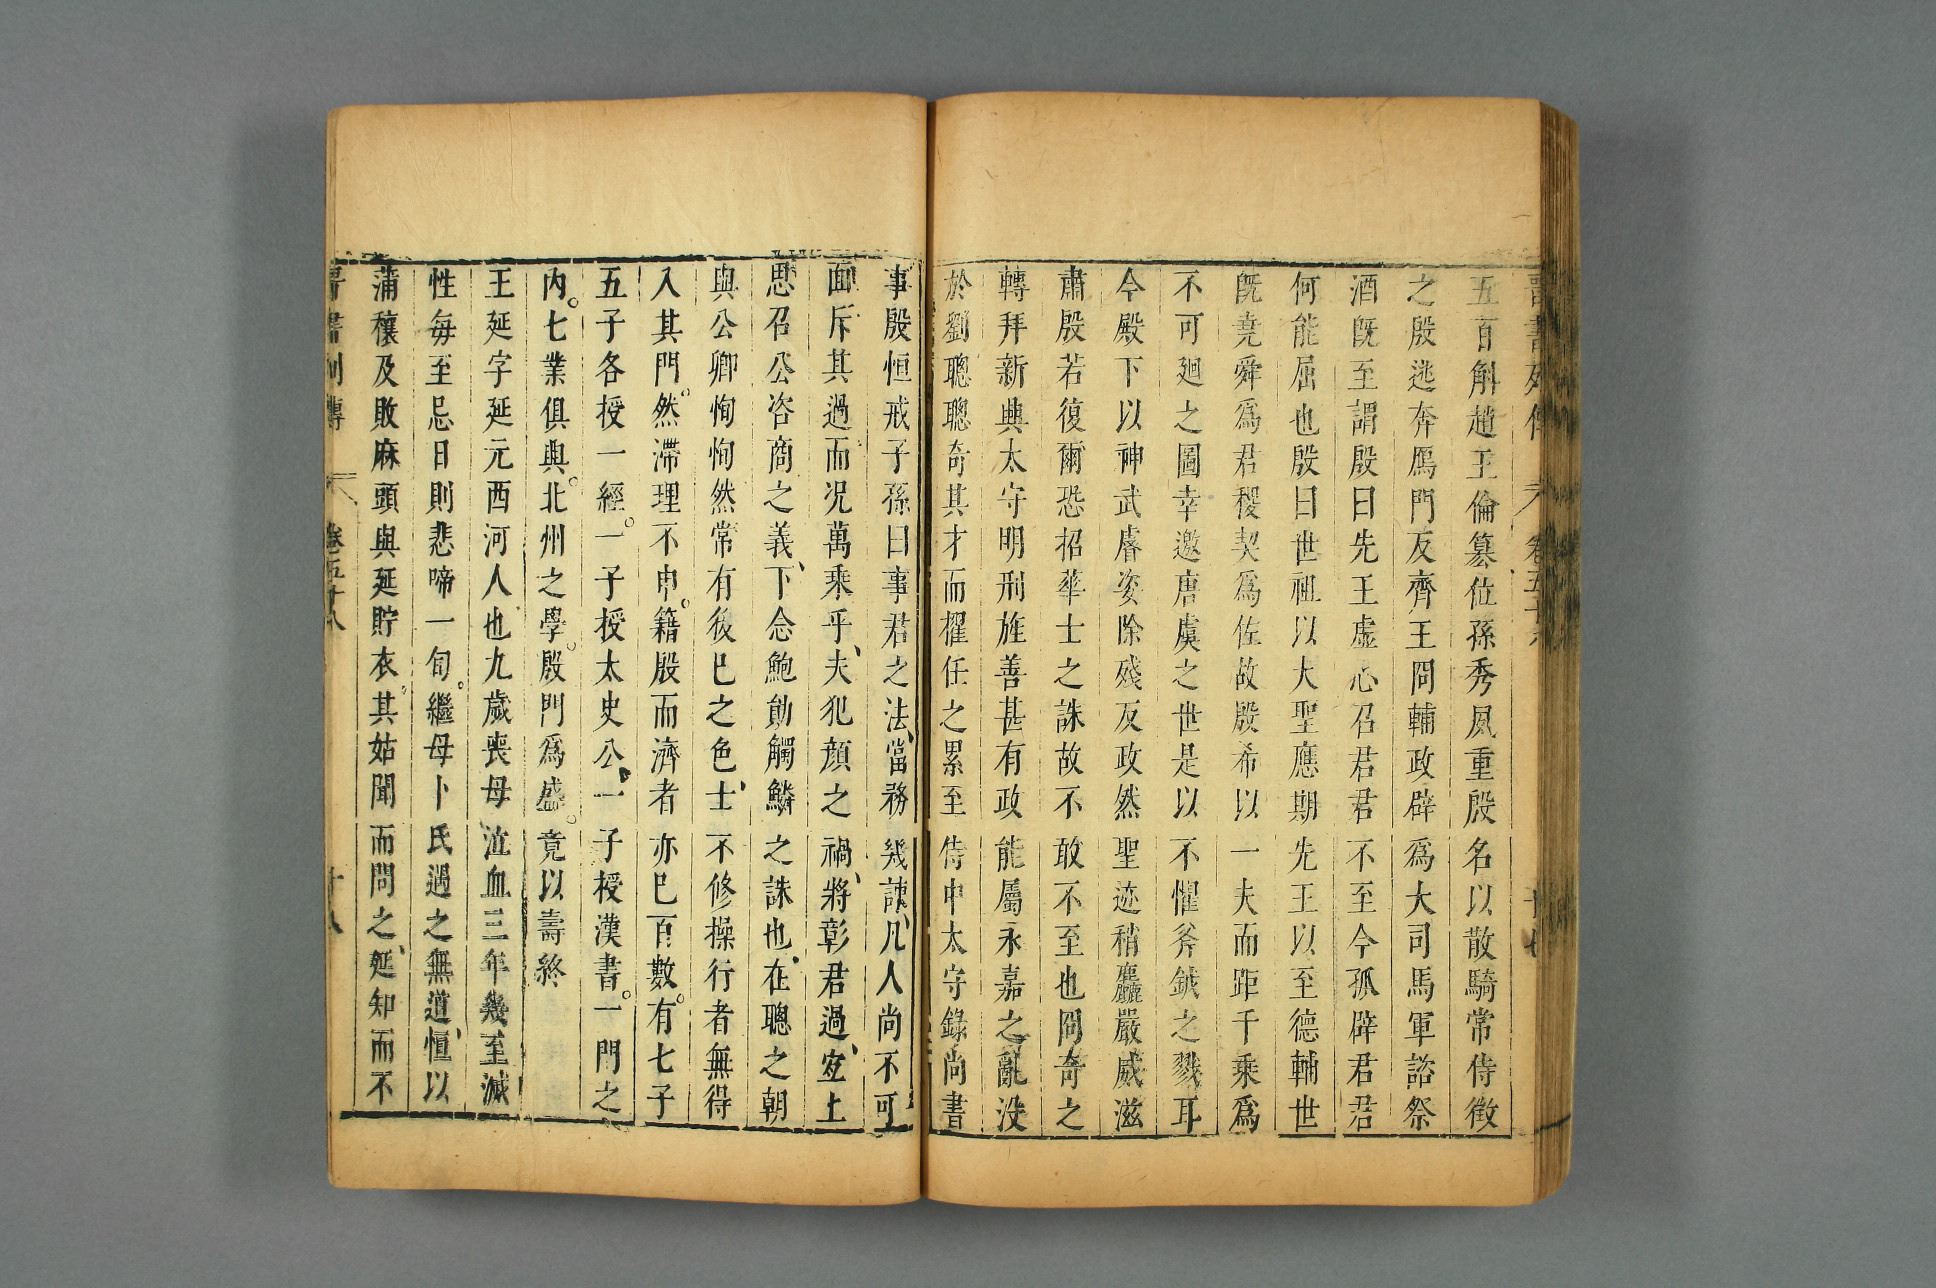 晉書列傳 卷五十八 十七
五百斛趙王倫篡位孫秀夙重殷名以散騎常侍徵
之殷逃奔鴈門及齊王冏輔政辟爲大司馬軍諮祭
酒既至謂殷曰先王虛心召君君不至今孤辟君君
何能屈也殷曰世祖以大聖應期先王以至德輔世
既堯舜爲君稷契爲佐故殷希以一夫而距千乘爲
不可廻之圖幸邀唐虞之世是以不懼斧鉞之戮耳
今殿下以神武睿姿除殘反政然聖迹稍麤嚴威滋
肅殷若復爾恐招華士之誅故不敢不至也冏奇之
轉拜新興太守明刑旌善甚有政能屬永嘉之亂没
於劉聰聰奇其才而擢任之累至侍中太守錄尚書
事殷恒戒子孫曰事君之法當務幾諫凡人尚不可
面斥其過而况萬乘乎夫犯顔之禍將彰君過宜上
思召公咨商之義下念鮑勛觸鱗之誅也在聰之朝
與公卿恂恂然常有後已之色士不修操行者無得
入其門然滯理不申籍殷而濟者亦已百數有七子
五子各授一經一子授太史公一子授漢書一門之
內七業俱興北州之學殷門爲盛竟以壽終
王延字延元西河人也九歲喪母泣血三年幾至滅
性每至忌日則悲啼一旬繼母卜氏遇之無道恒以
蒲穰及敗麻頭與延貯衣其姑聞而問之延知而不
晉書列傳 卷五十八 十八